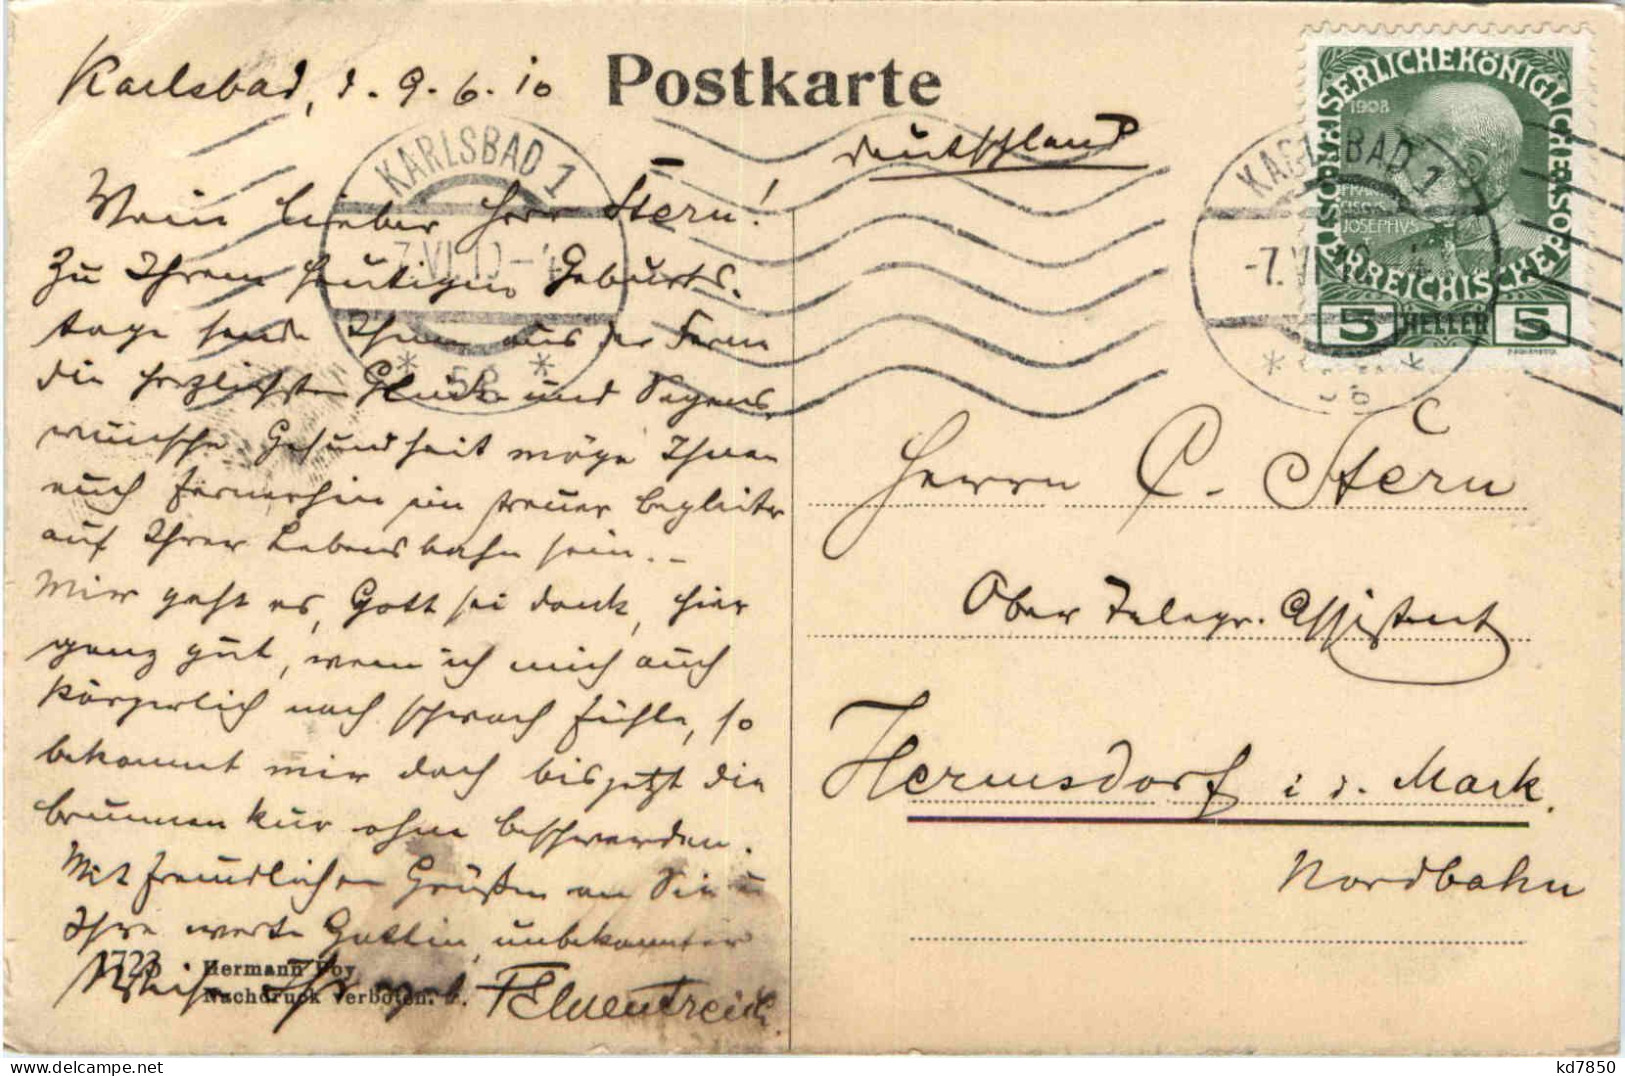 Karlsbad, d. 9.6.10
Postkarte
Deutschland
KARLSBAD 1
7.VI.10-4
* 5a *
KARLSBAD 1
-7.VI
KAISERLICHE KÖNIGLICHE ÖSTERREICHISCHE POST
1908
FRANCISCVS JOSEPHVS
5 HELLER 5
Mein lieber Herr Stern!
Zu Ihrem heutigen Geburts-
tage sende Ihnen aus der Ferne
die herzlichsten Glück- und Segens-
wünsche Gesundheit möge Ihnen
auch fernerhin ein treuer Begleiter
auf Ihrer Lebensbahn sein. -
Mir geht es, Gott sei dank, hier
ganz gut, wenn ich mich auch
körperlich noch schwach fühle, so
bekommt mir doch bis jetzt die
Brunnenkur ohne Beschwerden.
Mit freundlichen Grüßen an Sie u
Ihre werte Gattin, unbekannter
Weise Ihr
1723 Hermann Poy
Nachdruck verboten.
Herrn C. Stern
Ober Telegr. Assistent
Hermsdorf i. d. Mark.
Nordbahn
kd7850